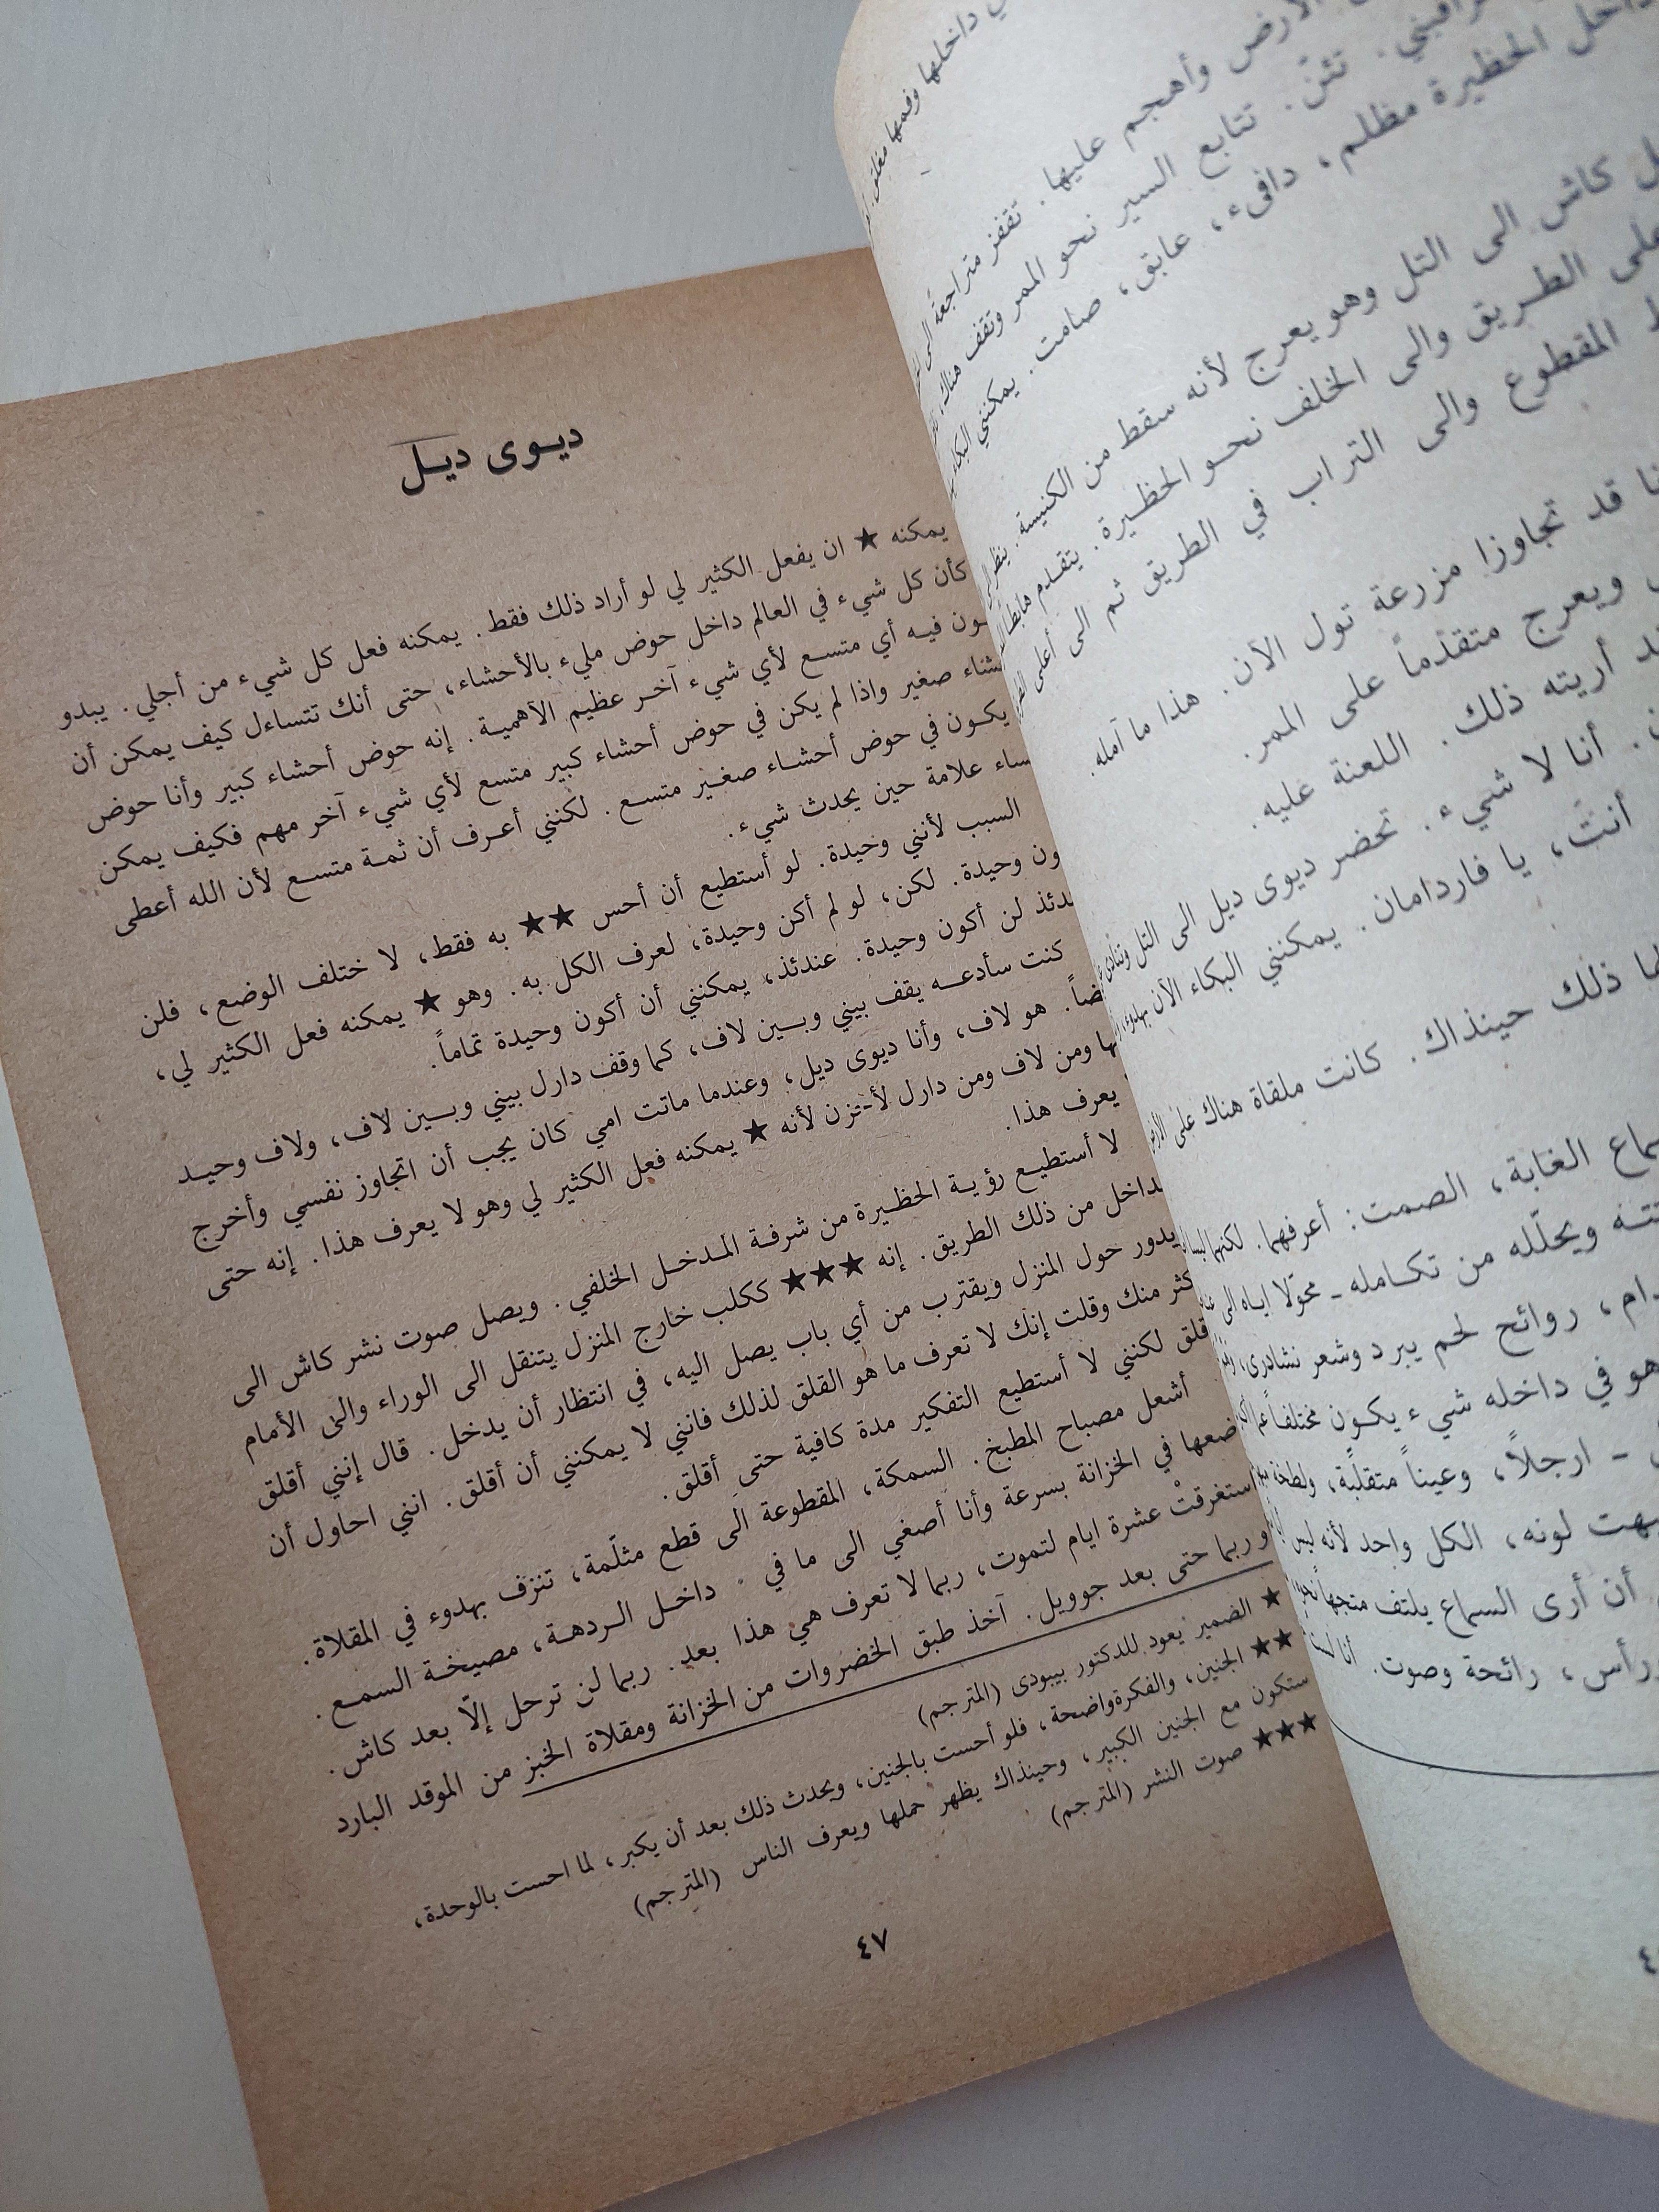 داخلها وفمها مغلق.
الأرض وأهجم عليها. تقفز متراجعة الى
تراقبني. تئنّ. تتابع السير نحو الممر وتقف هناك،
داخل الحظيرة مظلم، دافىء، عابق، صامت. يمكنني البكاء
كاش الى التل وهو يعرج لأنه سقط من الكنيسة. ينظر
على الطريق والى الخلف نحو الحظيرة. يتقدم هابطا
المقطوع والى التراب في الطريق ثم الى أعلى
قد تجاوزا مزرعة تول الآن. هذا ما آمله.
ويعرج متقدّماً على الممر.
أريته ذلك. اللعنة عليه.
أنا لا شيء. تحضر ديوى ديل الى التل وتنادى
أنتَ، يا فاردامان. يمكنني البكاء الآن بهدوء،
ذلك حينذاك. كانت ملقاة هناك على
الغابة، الصمت: أعرفهما. لكنهما
ويحلّله من تكامله - محوّلا اياه الى
روائح لحم يبرد وشعر نشادرى،
هو في داخله شيء يكون مختلفاً عن
- ارجلاً، وعيناً متقلّبة، ولطخة
لونه، الكل واحد لأنه ليس
أن أرى السماع يلتف متجهاً نحوه
رأس، رائحة وصوت. أنا لست
ديوى ديل
يمكنه ★ ان يفعل الكثير لي لو أراد ذلك فقط. يمكنه فعل كل شيء من أجلي. يبدو
كأن كل شيء في العالم داخل حوض مليء بالأحشاء، حتى أنك تتساءل كيف يمكن أن
فيه أي متسع لأي شيء آخر عظيم الأهمية. إنه حوض أحشاء كبير وأنا حوض
صغير واذا لم يكن في حوض أحشاء كبير متسع لأي شيء آخر مهم فكيف يمكن
يكون في حوض أحشاء صغير متسع. لكنني أعرف أن ثمة متسع لأن الله أعطى
علامة حين يحدث شيء.
السبب لأنني وحيدة. لو أستطيع أن أحس ★★ به فقط، لا ختلف الوضع، فلن
وحيدة. لكن، لو لم أكن وحيدة، لعرف الكل به. وهو ★ يمكنه فعل الكثير لي،
لن أكون وحيدة. عندئذ، يمكنني أن أكون وحيدة تماماً.
كنت سأدعه يقف بيني وبين لاف، كما وقف دارل بيني وبين لاف، ولاف وحيد
هو لاف، وأنا ديوى ديل، وعندما ماتت امي كان يجب أن اتجاوز نفسي وأخرج
ومن لاف ومن دارل لأحزن لأنه ★ يمكنه فعل الكثير لي وهو لا يعرف هذا. إنه حتى
يعرف هذا.
لا أستطيع رؤية الحظيرة من شرفة المدخل الخلفي. ويصل صوت نشر كاش الى
من ذلك الطريق. إنه ★★★ ككلب خارج المنزل يتنقل الى الوراء والى الأمام
يدور حول المنزل ويقترب من أي باب يصل اليه، في انتظار أن يدخل. قال إنني أقلق
منك وقلت إنك لا تعرف ما هو القلق لذلك فانني لا يمكنني أن أقلق. انني احاول أن
لكنني لا أستطيع التفكير مدة كافية حتى أقلق.
أشعل مصباح المطبخ. السمكة، المقطوعة الى قطع مثلّمة، تنزف بهدوء في المقلاة.
في الخزانة بسرعة وأنا أصغي الى ما في داخل الردهة، مصيخة السمع.
استغرقتْ عشرة ايام لتموت، ربما لا تعرف هي هذا بعد. ربما لن ترحل إلاّ بعد كاش.
و ربما حتى بعد جوويل. آخذ طبق الخضروات من الخزانة ومقلاة الخبز من الموقد البارد
★ الضمير يعود للدكتور بيبودى (المترجم)
★★ الجنين، والفكرة واضحة، فلو أحست بالجنين، ويحدث ذلك بعد أن يكبر، لما احست بالوحدة،
ستكون مع الجنين الكبير، وحينذاك يظهر حملها ويعرف الناس (المترجم)
★★★ صوت النشر (المترجم)
٤٧